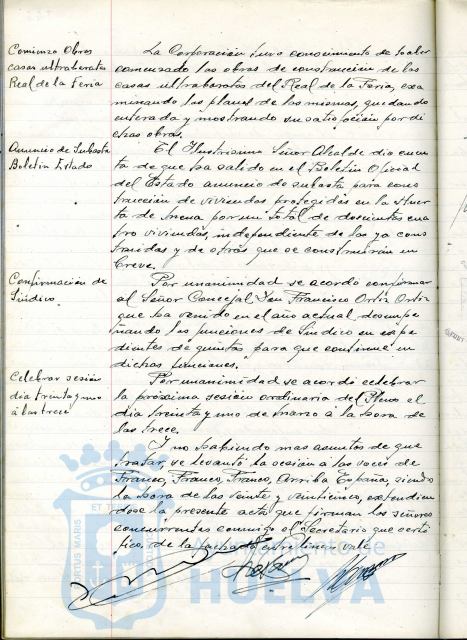 Comienzo Obras
casas ultrabaratas
Real de la Feria
La Corporación tuvo conocimiento de haber
comenzado las obras de construcción de las
casas ultrabaratas del Real de la Feria, exa
minando los planos de las mismas, quedando
enterada y mostrando su satisfacción por di
chas obras.
Anuncio de Subasta
Boletín Estado
El Ilustrísimo Señor Alcalde dió cuen
ta de que ha salido en el Boletín Oficial
del Estado anuncio de subasta para cons
trucción de viviendas protegidas en la Huer
ta de Mena por un total de doscientas cua
tro viviendas, independiente de las ya cons
truidas y de otras que se construirán en
breve.
Confirmación de
Síndico
Por unanimidad se acordó confirmar
al Señor Concejal Don Francisco Ortiz Ortiz
que ha venido en el año actual desempe
ñando las funciones de Síndico en expe
dientes de quintas para que continúe en
dichas funciones.
Celebrar sesión
día treinta y uno
á las trece
Por unanimidad se acordó celebrar
la próxima sesión ordinaria del Pleno el
día treinta y uno de marzo á la hora de
las trece.
Y no habiendo mas asuntos de que
tratar, se levantó la sesión a las voces de
Franco, Franco, Franco, Arriba España, siendo
la hora de las veinte y veinticinco, extendien
dose la presente acta que firman los señores
concurrentes conmigo el Secretario que certi
fico, de la tachado entre línea vale
Ayuntamiento de
HUELVA